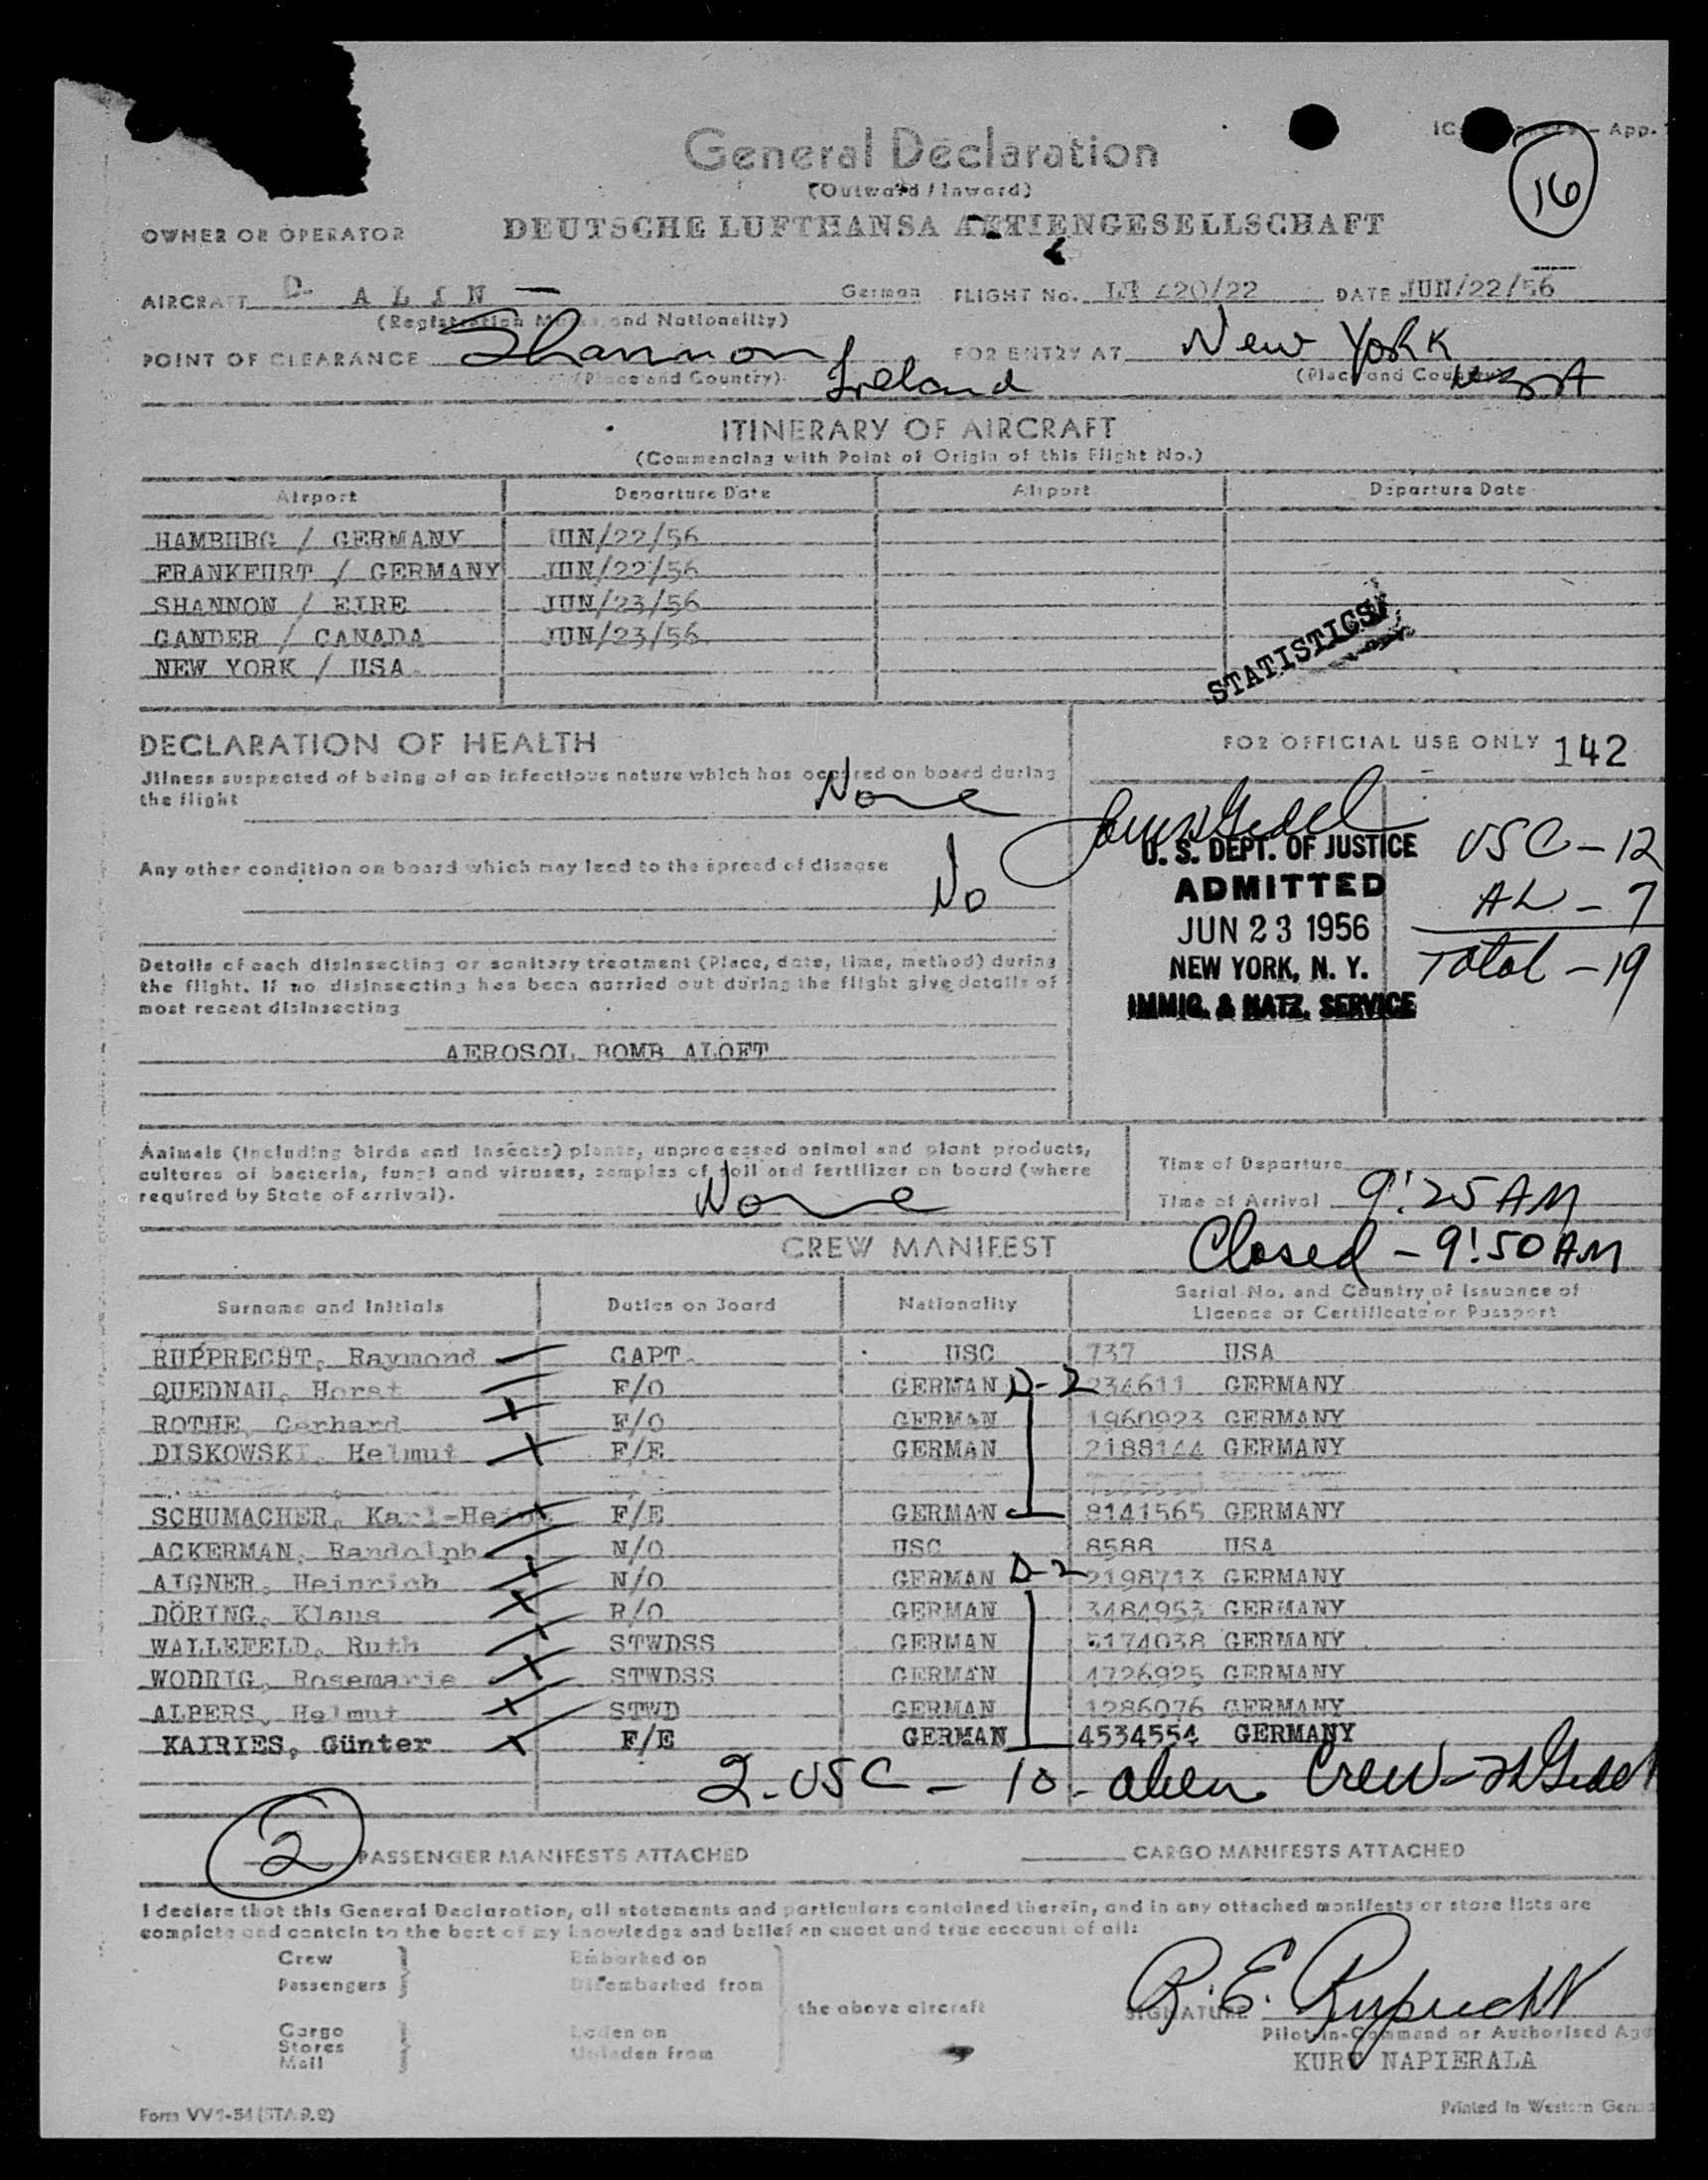 General Declaration
(Outward / Inward)
16
OWNER OR OPERATOR DEUTSCHE LUFTHANSA AKTIENGESELLSCHAFT
AIRCRAFT D- A L I N — German FLIGHT No. LH 420/22 DATE JUN/22/56
(Registration Marks and Nationality)
POINT OF CLEARANCE Shannon Ireland FOR ENTRY AT New York USA
(Place and Country) (Place and Country)
ITINERARY OF AIRCRAFT
(Commencing with Point of Origin of this Flight No.)
Airport Departure Date Airport Departure Date
HAMBURG / GERMANY JUN/22/56
FRANKFURT / GERMANY JUN/22/56
SHANNON / EIRE JUN/23/56
GANDER / CANADA JUN/23/56
NEW YORK / USA
STATISTICS
DECLARATION OF HEALTH
FOR OFFICIAL USE ONLY 142
Illness suspected of being of an infectious nature which has occurred on board during
the flight None
Any other condition on board which may lead to the spread of disease
No
U. S. DEPT. OF JUSTICE
ADMITTED
JUN 23 1956
NEW YORK, N. Y.
IMMIG. & NATZ. SERVICE
USC - 12
AL - 7
Total - 19
Details of each disinsecting or sanitary treatment (Place, date, time, method) during
the flight. If no disinsecting has been carried out during the flight give details of
most recent disinsecting
AEROSOL BOMB ALOFT
Animals (including birds and insects) plants, unprocessed animal and plant products,
cultures of bacteria, fungi and viruses, samples of soil and fertilizer on board (where
required by State of arrival). None
Time of Departure
Time of Arrival 9:25 AM
Closed - 9:50 AM
CREW MANIFEST
Surname and Initials Duties on Board Nationality Serial No. and Country of Issuance of
Licence or Certificate or Passport
RUPPRECHT, Raymond CAPT. USC 737 USA
QUEDNAU, Horst F/O GERMAN D-2 234611 GERMANY
ROTHE, Gerhard F/O GERMAN 1960923 GERMANY
DISKOWSKI, Helmut F/E GERMAN 2188144 GERMANY
SCHUMACHER, Karl-Heinz F/E GERMAN 8141565 GERMANY
ACKERMAN, Randolph N/O USC 8588 USA
AIGNER, Heinrich N/O GERMAN D-2 2198713 GERMANY
DÖRING, Klaus R/O GERMAN 3484953 GERMANY
WALLEFELD, Ruth STWDSS GERMAN 5174038 GERMANY
WODRIG, Rosemarie STWDSS GERMAN 4726925 GERMANY
ALPERS, Helmut STWD GERMAN 1286076 GERMANY
KAIRIES, Günter F/E GERMAN 4534554 GERMANY
2-USC - 10 - alien Crew -
2 PASSENGER MANIFESTS ATTACHED CARGO MANIFESTS ATTACHED
I declare that this General Declaration, all statements and particulars contained therein, and in any attached manifests or store lists are
complete and contain to the best of my knowledge and belief an exact and true account of all:
Crew
Passengers
Embarked on
Disembarked from
the above aircraft
Cargo
Stores
Mail
Loden on
Unladen from
SIGNATURE R. E. Rupprecht
Pilot-in-Command or Authorised
KURT NAPIERALA
Form VV1-54 (STA 9.2)
Printed in Western